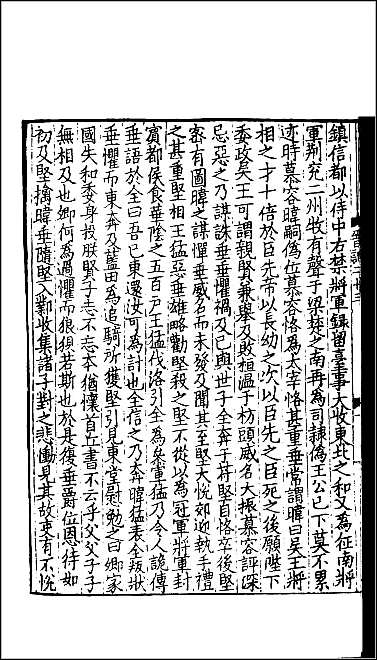 鎮信都以侍中右禁將軍録留臺事大收東北之和又為征南將
軍荆兖二州牧有聲于梁楚之南再為司隸偽王公已下莫不累
迹時慕容暐嗣偽位慕容恪為太宰恪甚重垂常謂暐曰吴王將
相之才十倍於臣先帝以長幼之次以臣先之臣死之後願陛下
委政吴王可謂親賢兼舉及敗桓温于枋頭威名大振慕容評深
忌惡之乃謀誅垂垂懼禍及己與世子全奔于苻堅自恪卒後堅
宻有圖暐之謀憚垂威名而未發及聞其至堅大恱郊迎執手禮
之甚重堅相王猛惡垂雄略勸堅殺之堅不從以為冠軍將軍封
賓都侯食華隂之五百戸王猛伐洛引全為叅軍猛乃令人詭傳
垂語於全曰吾已東還汝可為計也全信之乃奔暐猛表全叛狀
垂懼而東奔及藍田為追騎所獲堅引見東堂慰勉之曰卿家
國失和委身投朕賢子志不忘本猶懷首丘書不云乎父父子子
無相及也卿何為過懼而狼狽若斯也於是復垂爵位恩待如
初及堅擒暐垂隨堅入鄴收集諸子對之悲慟見其故吏有不恱